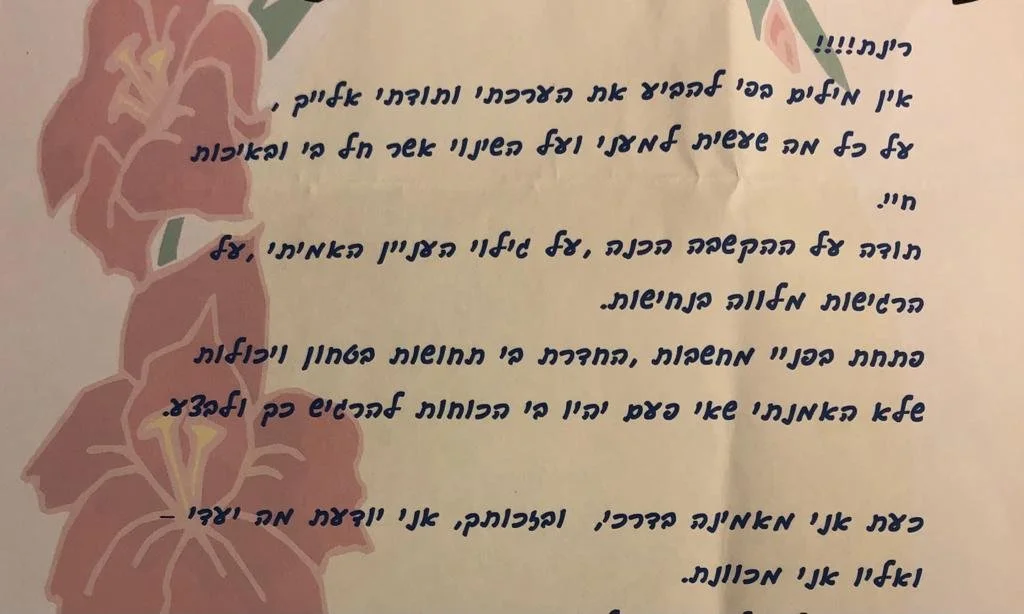 רינת!!!!
אין מילים בפי להביע את הערכתי ותודתי אלייך ,
על כל מה שעשית למעני ועל השינוי אשר חל בי ובאיכות
חיי.
תודה על ההקשבה הכנה ,על גילוי העניין האמיתי ,על
הרגישות מלווה בנחישות.
פתחת בפניי מחשבות ,החדרת בי תחושות בטחון ויכולות
שלא האמנתי שאי פעם יהיו בי הכוחות להרגיש כך ולבצע.
כעת אני מאמינה בדרכי, ובזכותך, אני יודעת מה יעדי –
ואליו אני מכוונת.